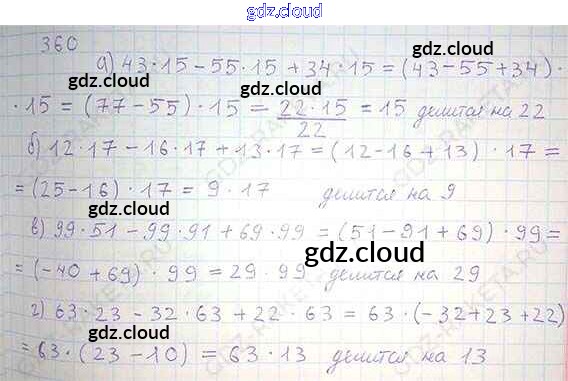 gdz.cloud
360
gdz.cloud
а) 43·15-55·15+34·15=(43-55+34)·
gdz.cloud
·15=(77-55)·15=22·15/22=15 делится на 22
gdz.cloud
б) 12·17-16·17+13·17=(12-16+13)·17=
=(25-16)·17=9·17 делится на 9
gdz.cloud
в) 99·51-99·91+69·99=(51-91+69)·99=
gdz.cloud
=(-40+69)·99=29·99 делится на 29
gdz.cloud
г) 63·23-32·63+22·63=63·(-32+23+22)
gdz.cloud
=63·(23-10)=63·13 делится на 13
gdz.cloud